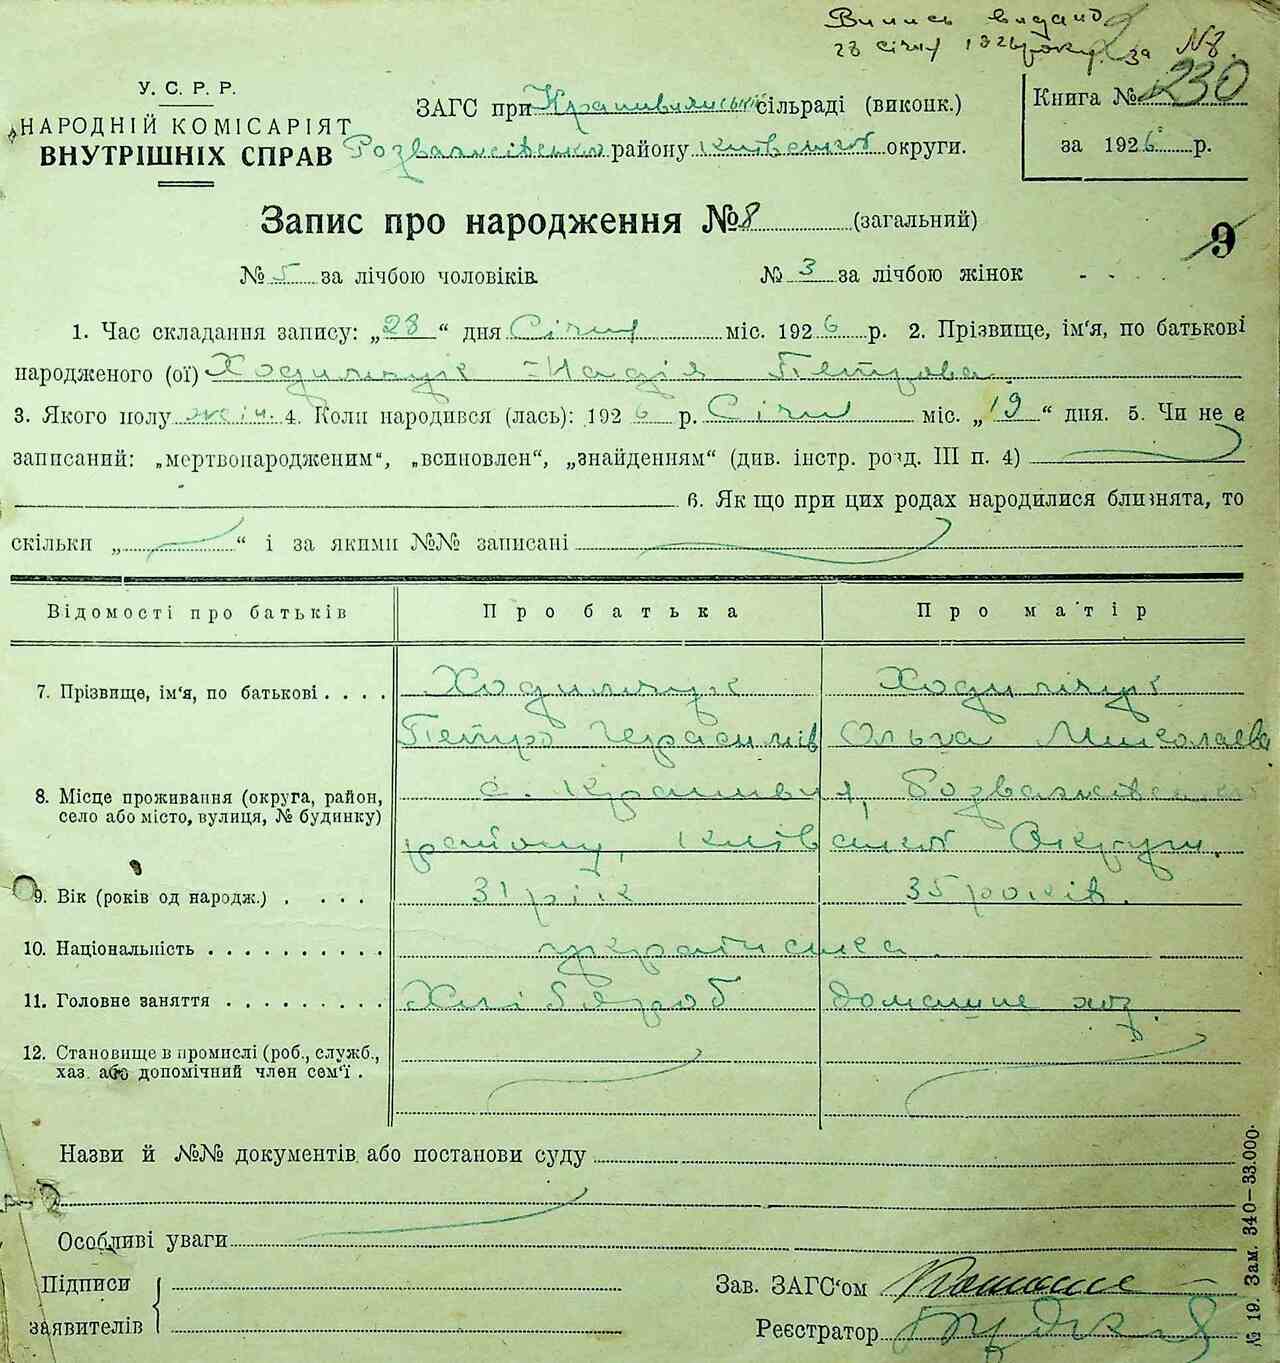 Випись видано
28 січня 1926 року за №8.
У. С. Р. Р.
НАРОДНІЙ КОМІСАРІЯТ
ВНУТРІШНІХ СПРАВ
ЗАГС при Крапивлянській сільраді (виконк.)
Розважівського району Київської округи.
Книга № 230
за 1926 р.
Запис про народження № 8 (загальний)
9
№ 5 за лічбою чоловіків
№ 3 за лічбою жінок
1. Час складання запису: „28“ дня Січня міс. 1926 р. 2. Прізвище, ім‘я, по батькові
народженого (ої) Ходимчук Надія Петрова
3. Якого полу жін. 4. Коли народився (лась): 1926 р. Січня міс. „19“ дня. 5. Чи не є
записаний: „мертвонародженим“, „всиновлен“, „знайденням“ (див. інстр. розд. III п. 4)
6. Як що при цих родах народилися близнята, то
скільки „ “ і за якими №№ записані
Відомості про батьків Про батька Про матір
7. Прізвище, ім‘я, по батькові . . . . Ходимчук Ходимчук
Петро Герасимів Ольга Миколаєва
8. Місце проживання (округа, район,
село або місто, вулиця, № будинку)
с. Крапивня, Розважівського
району, Київської Округи.
9. Вік (років од народж.) . . . . 31 рік 35 років.
10. Національність . . . . . . . . . . українська.
11. Головне заняття . . . . . . . . . Хлібороб домашне хоз.
12. Становище в промислі (роб., служб.,
хаз. або допомічний член сем‘ї .
Назви й №№ документів або постанови суду
Особливі уваги
Підписи
заявителів
Зав. ЗАГС‘ом
Реєстратор
№ 19. Зам. 340—33.000.